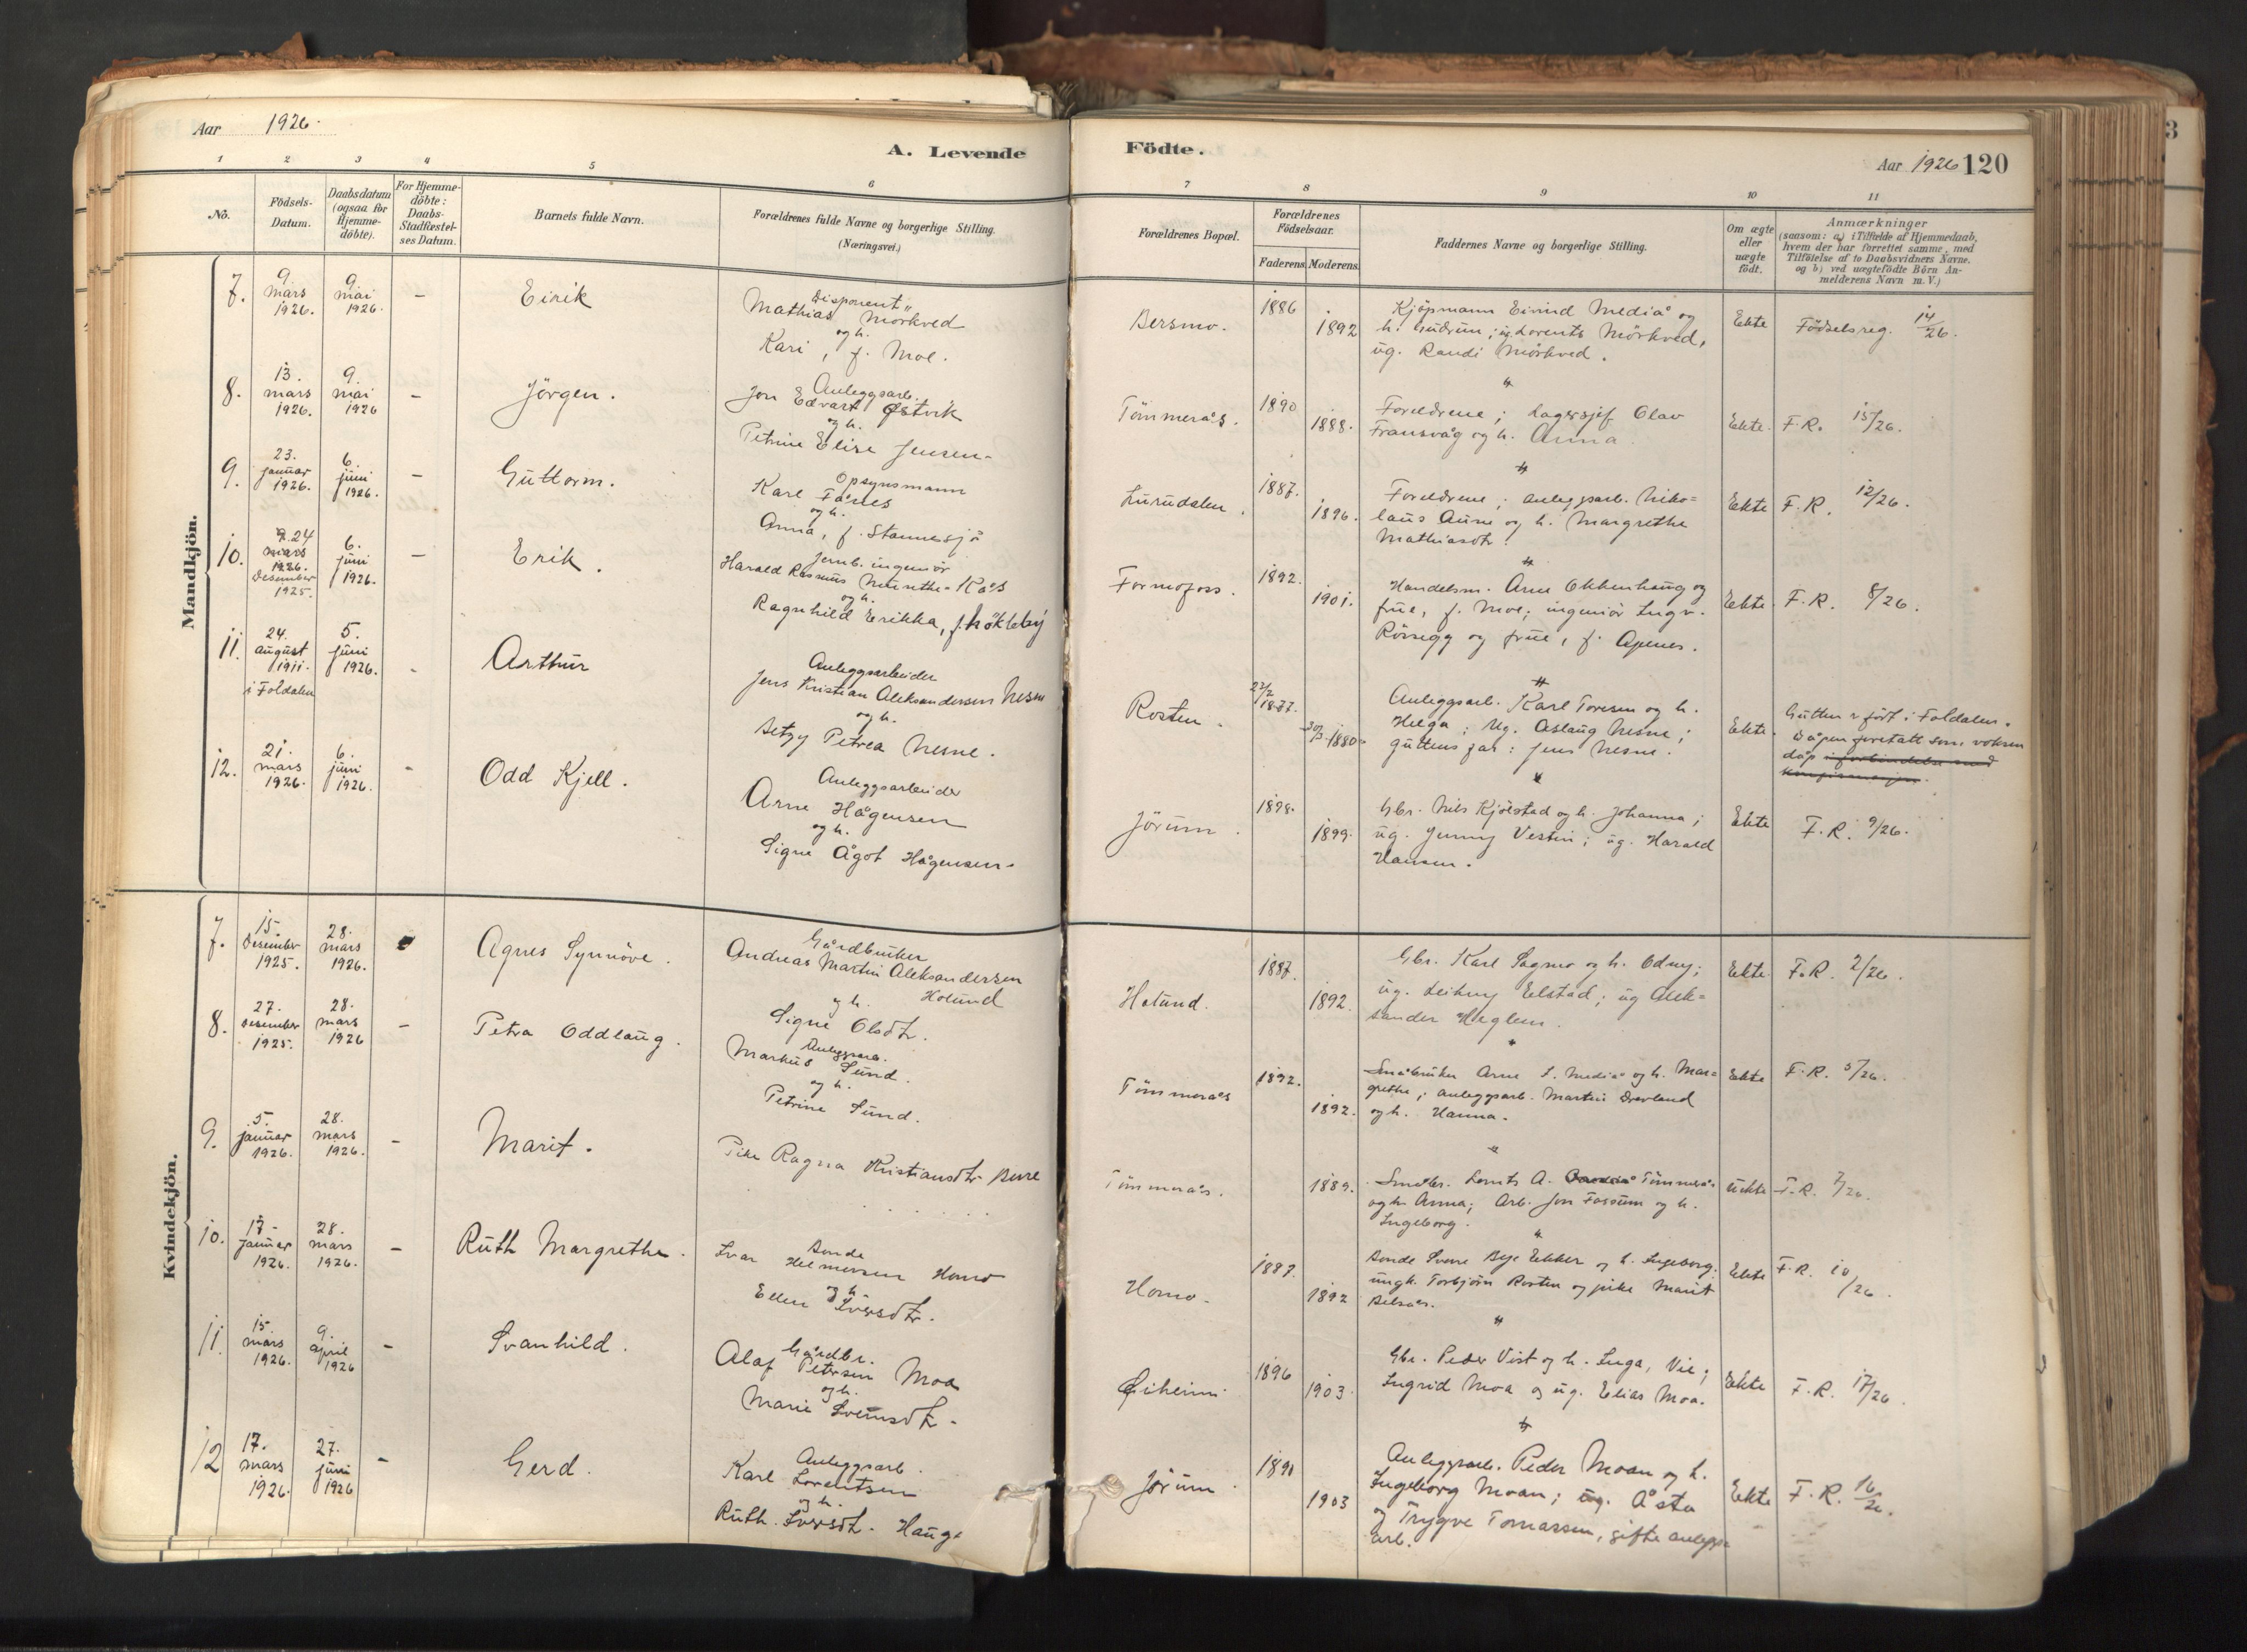 Aar 1926.
A. Levende
Födte.
Aar 1926 120
1 2 3 4 5 6 7 8 9 10 11
No.
Födsels-
Datum.
Daabsdatum
(ogsaa for
Hjemme-
döbte).
For Hjemme-
döbte:
Daabs-
Stadfæstel-
ses Datum.
Barnets fulde Navn.
Forældrenes fulde Navne og borgerlige Stilling.
(Næringsvei.)
Forældrenes Bopæl.
Forældrenes
Födselsaar.
Faderens. Moderens.
Faddernes Navne og borgerlige Stilling.
Om ægte
eller
uægte
födt.
Anmærkninger
(saasom: a) i Tilfælde af Hjemmedaab,
hvem der har forrettet samme, med
Tilföielse af to Daabsvidners Navne.
og b) ved uægtefödte Börn An-
melderens Navn m. V.)
Mandkjön.
7.
9.
mars
1926.
9.
mai
1926.
-
Eirik
Disponent
Mathias Mörkved
og h.
Kari, f. Moe.
Bersmo.
1886
1892
Kjöpmann Eivind Mediå og
h. Gudrun; ug. Lorents Mörkved,
ug. Randi Mörkved.
Ekte
Födselsreg. 14/26.
8.
13.
mars
1926.
9.
mai
1926
-
Jörgen.
Anleggsarb.
Jon Edvart Østvik
og h.
Petrine Elise Jensen.
Tömmerås.
1890
1888.
Foreldrene; Lagersjef Olav
Fransvåg og h. Anna.
Ekte.
F.R. 15/26.
9.
23.
januar
1926.
6.
juni
1926.
-
Guttorm.
Opsynsmann
Karl Fånes
og h.
Anna, f. Stamnesjö
Lurudalen.
1887.
1896.
Foreldrene; anleggsarb. Niko=
laus Aune og h. Margrethe
Mathiasdtr.
Ekte
F.R. 12/26.
10.
24
mars
1926.
Desember
1925.
6.
juni
1926.
-
Erik.
Jernb. ingeniör
Harald Rasmus Munthe-Kås
og h.
Ragnhild Erikka, f. Hökleby
Formofoss.
1892.
1901.
Handelsm. Arne Okkenhaug og
frue, f. Moe; ingeniör Ingv.
Rössegg og frue, f. Apenes.
Ekte.
F.R. 8/26.
11.
24.
august
1911.
i Foldalen
5.
juni
1926.
-
Arthur
Anleggsarbeider
Jens Kristian Aleksandersen Nesne
og h.
Betzy Petrea Nesne.
Rosten.
22/2
1877.
1880
Anleggsarb. Karl Toresen og h.
Helga; Ug. Aslaug Nesne;
guttens far: Jens Nesne.
Ekte.
Gutten er födt i Foldalen.
Dåpen foretatt som voksen
dåp i forbindelse med
konfirmasjon.
12.
21.
mars
1926.
6.
juni
1926.
-
Odd Kjell.
Anleggsarbeider
Arne Hågensen
og h.
Signe Ågot Hågensen.
Jörum.
1898.
1899.
Gbr. Nils Kjölstad og h. Johanna;
ug. Jenny Vestin; ug. Harald
Hansen.
Ekte
F.R. 9/26.
Kvindekjön.
7.
15.
Desember
1925.
28.
mars
1926.
Agnes Synnöve.
Gårdbruker
Andreas Martin Aleksandersen
Holund
og h.
Signe Olsdtr.
Holund.
1887.
1892.
Gbr. Karl Sagmo og h. Odny;
ug. Leikny Elstad; ug Alek=
sander Heglem.
Ekte.
F.R. 2/26.
8.
27.
Desember
1925.
28.
mars
1926
-
Petra Oddlaug.
Anleggsarb.
Markus Sund.
og h.
Petrine Sund.
Tömmerås
1892.
1892.
Småbruker Arne L. Mediå og h. Mar=
grethe; anleggsarb. Martin Overland
og h. Hanna.
Ekte
F.R. 5/26.
9.
5.
januar
1926.
28.
mars
1926.
-
Marit.
Pike Ragna Kristiansdtr. Bure
Tömmerås.
1889.
Småbr. Lornts A. Tömmerås
og h. Anna; Arb. Jon Fossum og h.
Ingeborg.
Uekte
F.R. 7/26.
10.
17.
januar
1926.
28.
mars
1926.
-
Ruth Margrethe.
Bonde
Ivar Helmersen Homo
og h.
Ellen Iversdtr.
Homo.
1887.
1892
Bonde Sverre Bye Ekker og h. Ingeborg.
ungk. Torbjörn Rosten og pike Marit
Belsås.
Ekte
F.R. 10/26.
11.
15.
mars
1926.
9.
april
1926
-
Svanhild.
Gårdbr.
Olaf Petersen Moa
og h.
Marie Sveinsdtr.
1896
1903.
Gbr. Peder Vist og h. Inga, Vie;
Ingrid Moa og ug. Elias Moa.
Ekte
F.R. 17/26.
12
17.
mars
1926.
27.
juni
1926
-
Gerd.
Anleggsarb.
Karl Lorentsen
og h.
Ruth Iversdtr. Haug.
Jörum.
1890
1903
Anleggsarb. Peder Moan og h.
Ingeborg Moan; ug. Åsta
og Trygve Tomassen, gifte anleggs=
arb.
Ekte
F.R. 16/26.